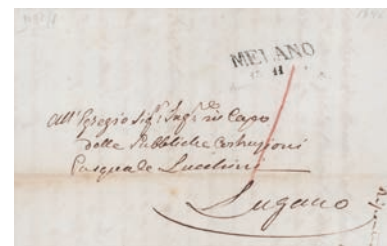 MELANO
11
All'Egregio Sigr. Ingre. in Capo
delle Pubbliche Costruzioni
Pasquale Lucchini
Lugano